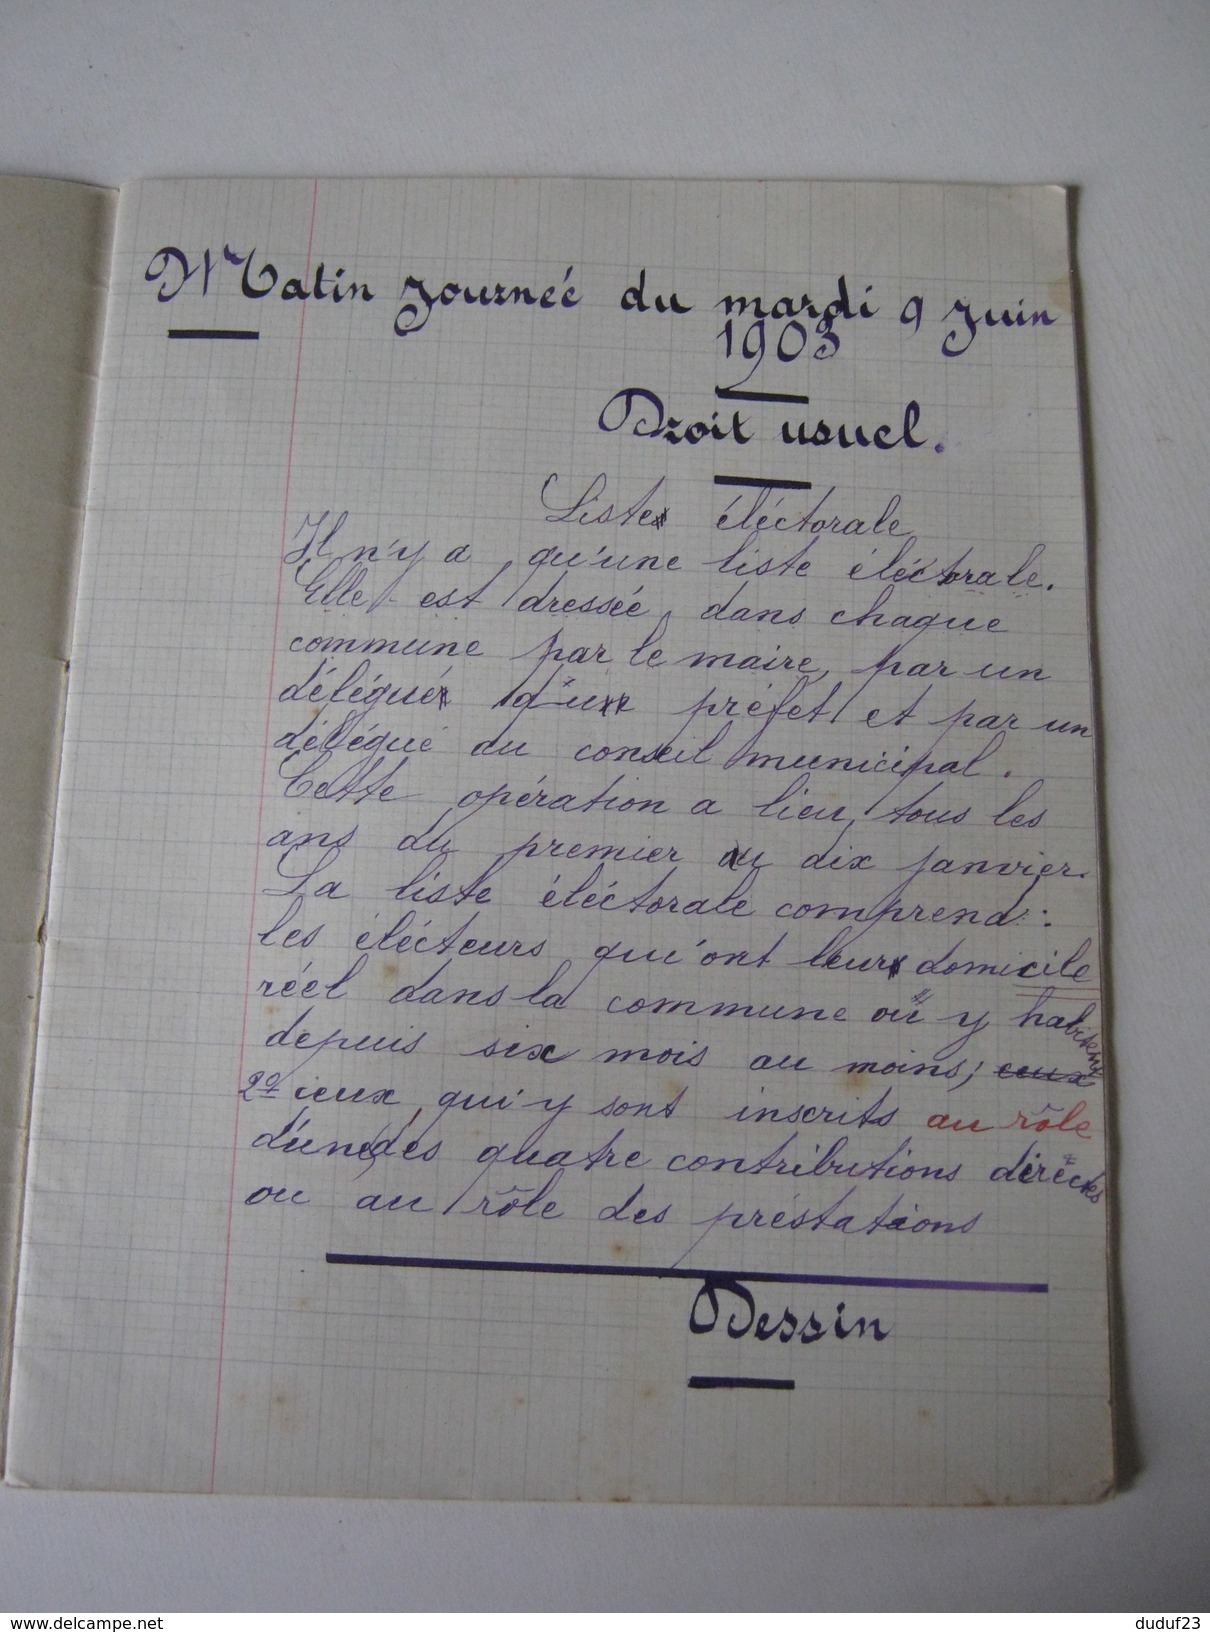 Matin Journeé du mardi 9 Juin
1903
Droit usuel.
Liste éléctorale
Il n'y a qu'une liste éléctorale.
Elle est dressée dans chaque
commune par le maire, par un
délégué du préfet et par un
délégué du conseil municipal.
Cette opération a lieu tous les
ans du premier au dix janvier.
La liste éléctorale comprend :
les élécteurs qui ont leur domicile
réel dans la commune où y habitent
depuis six mois au moins; ceux
2º ceux qui y sont inscrits au rôle
d'une des quatre contributions diréctes
ou au rôle des préstations
Dessin
www.delcampe.net
duduf23